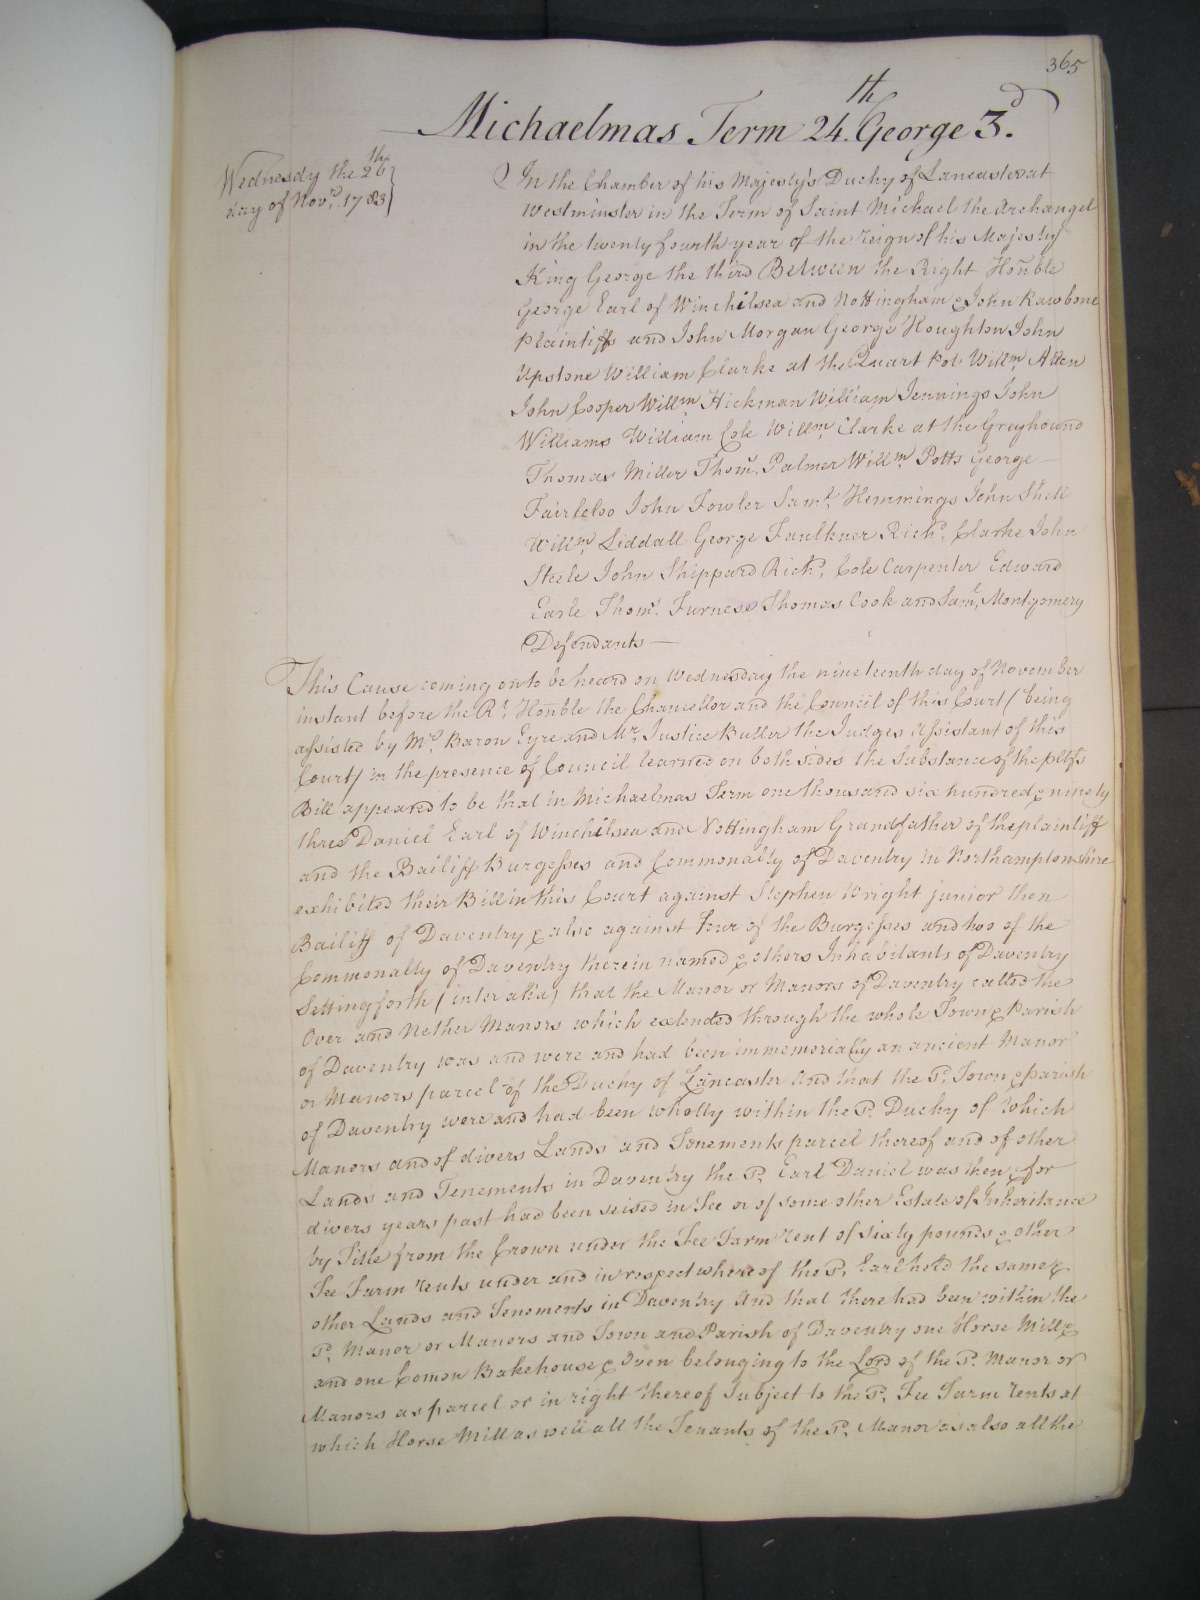 365
Michaelmas Term 24.th George 3.d
Wednesdy the 26th
day of Nov.r 1783
In the Chamber of his Majesty's Duchy of Lancaster at
Westminster in the Term of Saint Michael the Archangel
in the twenty fourth year of the reign of his Majesty
King George the third Between the Right Hoñble
George Earl of Winchilsea and Nottingham & John Rawbone
Plaintiffs and John Morgan George Houghton John
Upstone William Clarke at the Quart Pot Will.m Allen
John Cooper Will.m Hickman William Jennings John
Williams William Cole Will.m Clarke at the Greyhound
Thomas Miller Thom.s Palmer Will.m Potts George
John Fowler Sam.l Hemmings John Shell
Will.m Liddall George Faulkner Rich.d Clarke John
Steele John Shippard Rich.d Cole Carpenter Edward
Earle Thom.s Furnese Thomas Cook and Sam.l Montgomery
Defendants
This Cause coming on to be heard on Wednesday the nineteenth day of November
instant before the R.t Hoñble the Chancellor and the Council of this Court (being
assisted by M.r Baron Eyre and M.r Justice Buller the Judges Assistant of this
Court) in the presence of Council learned on both sides the Substance of the pltfs
Bill appeared to be that in Michaelmas Term one thousand six hundred & ninety
three Daniel Earl of Winchilsea and Nottingham Grandfather of the plaintiff
and the Bailiff Burgesses and Commonalty of Daventry in Northamptonshire
exhibited their Bill in this Court against Stephen Wright junior then
Bailiff of Daventry & also against four of the Burgesses and two of the
Commonalty of Daventry therein named & others Inhabitants of Daventry
Setting forth (inter alia) that the Manor or Manors of Daventry called the
Over and Nether Manors which extended through the whole Town & Parish
of Daventry was and were and had been immemorially an ancient Manor
or Manors parcel of the Duchy of Lancaster And that the s.d Town & parish
of Daventry were and had been wholly within the s.d Duchy of which
Manors and of divers Lands and Tenements parcel thereof and of other
Lands and Tenements in Daventry the s.d Earl Daniel was then & for
divers years past had been seised in Fee or of some other Estate of Inheritance
by Title from the Crown under the Fee Farm rent of sixty pounds & other
Fee Farm rents under and in respect whereof the s.d Earl held the same &
other Lands and Tenements in Daventry And that there had been within the
s.d Manor or Manors and Town and Parish of Daventry one Horse Mill &
and one Comon Bakehouse & Oven belonging to the Lord of the s.d Manor or
Manors as parcel or in right thereof Subject to the s.d Fee Farm rents at
which Horse Mill as well all the Tenants of the s.d Manor as also all the